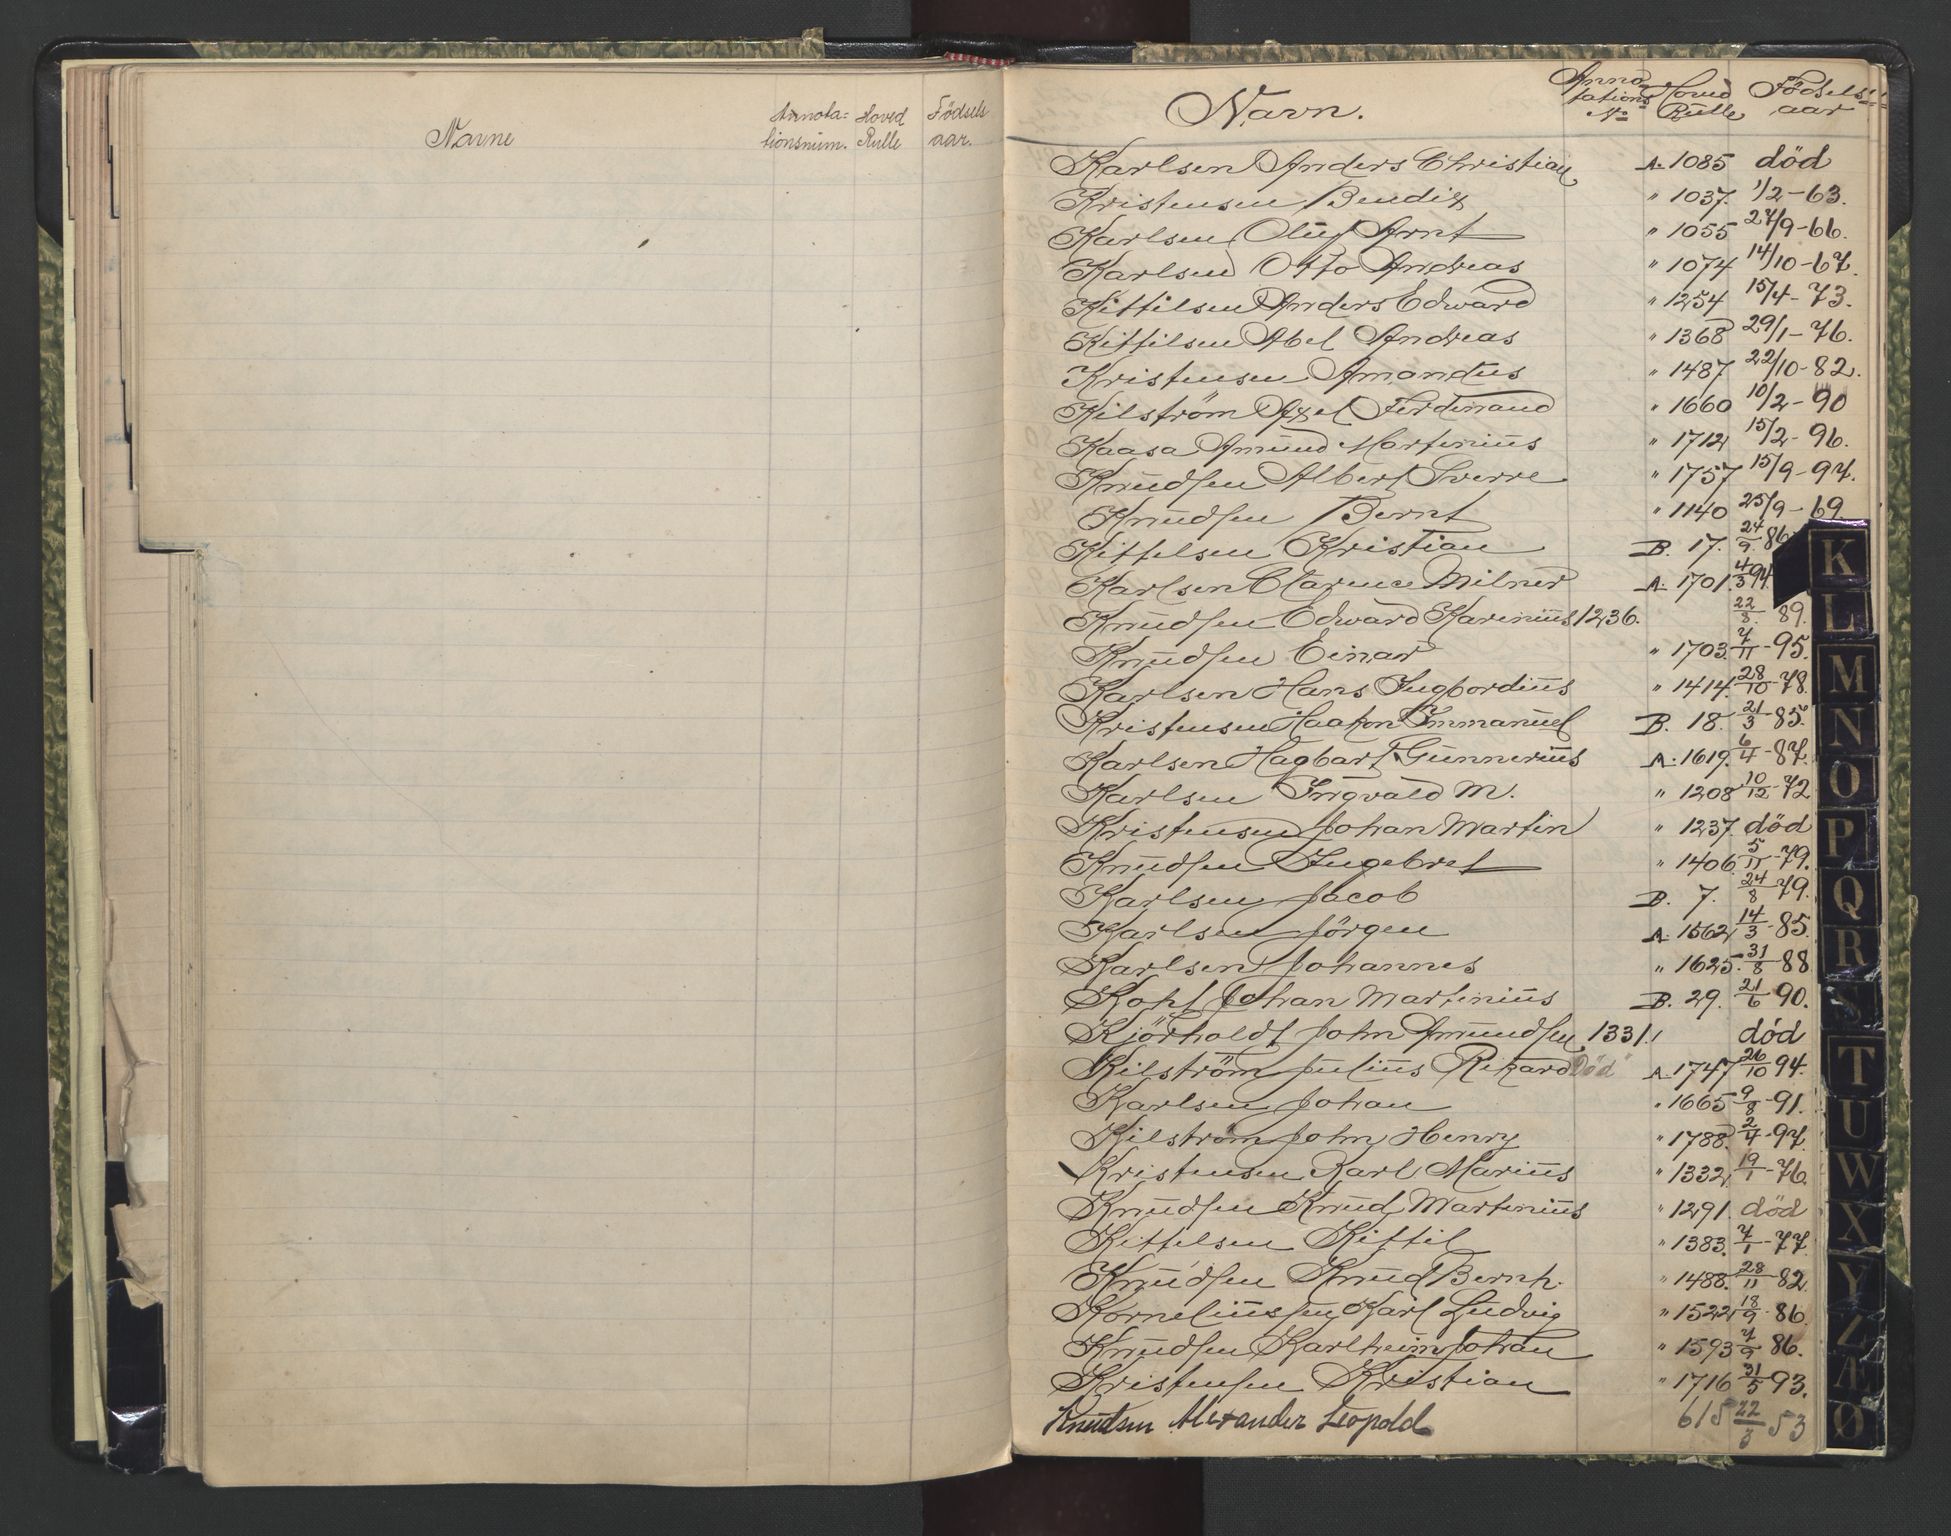 Navne Annota= Hoved Födsels
tionsnum. Rulle aar.
Navn. Anno Hoved Födsels
tations Rulle aar
No
Karlsen Anders Christian A. 1085 död
Kristensen Bendix " 1037. 1/2-63.
Karlsen Oluf Arnt " 1055 27/9-66.
Karlsen Otto Andreas " 1074 14/10-67.
Kittilsen Anders Edward " 1254 15/4-73.
Kittilsen Abel Andreas " 1368 29/1-76.
Kristensen Amandus " 1487 22/10-82.
Kilström Axel Ferdinand " 1660 10/2-90
Kaasa Amund Martinius " 1712 15/2-96.
Knudsen Albert Sverre " 1757 15/9-97.
Knudsen Bernt " 1140 25/9-69
Kittelsen Kristian B. 17. 24/9 86
Karlsen Clarence Milner A. 1701. 4/3 94.
Knudsen Edward Karinius 1236. 22/8. 89.
Knudsen Einar " 1703. 7/11-95.
Karlsen Hans Ingbordius " 1414. 28/10-78.
Kristensen Haakon Immanuel B. 18. 21/3-85.
Karlsen Hagbart Gunnerius A. 1619. 6/4-87.
Karlsen Ingvald M. " 1208 10/12-72
Kristensen Johan Martin " 1237. död
Knudsen Ingebret " 1406 5/11-79.
Karlsen Jacob B. 7. 24/8 79.
Karlsen Jörgen A. 1562 14/3-85.
Karlsen Johannes " 1625. 31/8 88
Koht Johan Martinius B. 29. 21/6 90.
Kjörholdt John Amundsen 1331. död
Kilström Julius Rikard Död A. 1747 26/10 94.
Karlsen Johan " 1665 9/8-91.
Kilström John Henry " 1788. 2/4-97.
Kristensen Karl Marius " 1332 19/1-76.
Knudsen Knud Martinius " 1291. död
Kittelsen Kittil " 1383. 7/1-77.
Knudsen Knud Bernh. " 1488. 28/11-82
Korneliussen Karl Ludvig " 1522 18/9-86
Knudsen Karlheim Johan " 1593 7/9 86.
Kristensen Kristian " 1716 31/5 93.
Knudsen Alexander Leopold 615 22/3 53
K
L
M
N
O
P
Q
R
S
T
U
W
X
Y
Z
Æ
Ø